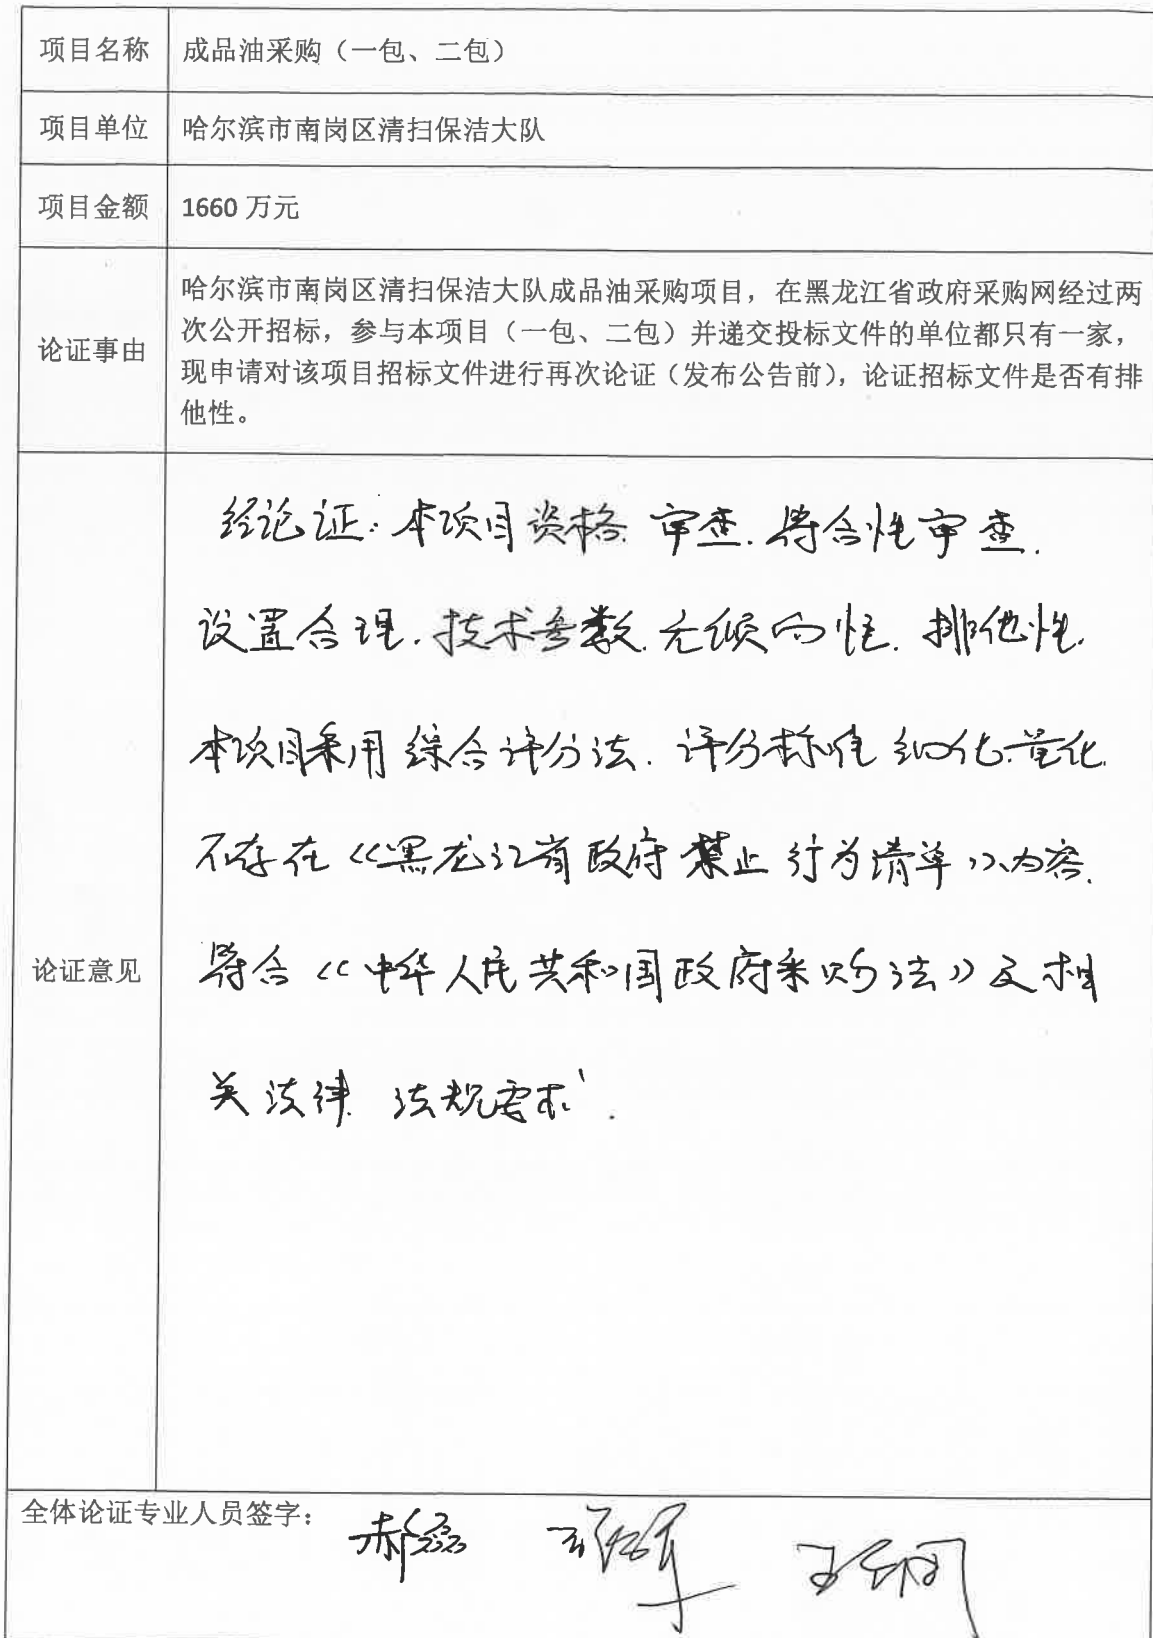 项目名称 成品油采购（一包、二包）
项目单位 哈尔滨市南岗区清扫保洁大队
项目金额 1660 万元
论证事由
哈尔滨市南岗区清扫保洁大队成品油采购项目，在黑龙江省政府采购网经过两
次公开招标，参与本项目（一包、二包）并递交投标文件的单位都只有一家，
现申请对该项目招标文件进行再次论证（发布公告前），论证招标文件是否有排
他性。
论证意见
经论证：本项目资格审查．符合性审查．
设置合理．技术参数．无倾向性．排他性．
本项目采用综合评分法．评分标准细化．量化．
不存在《黑龙江省政府禁止行为清单》内容．
符合《中华人民共和国政府采购法》及相
关法律 法规要求．
全体论证专业人员签字：